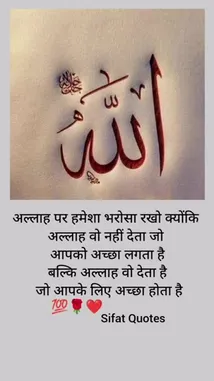 الله
अल्लाह पर हमेशा भरोसा रखो क्योंकि
अल्लाह वो नहीं देता जो
आपको अच्छा लगता है
बल्कि अल्लाह वो देता है
जो आपके लिए अच्छा होता है
💯🌹❤️
Sifat Quotes